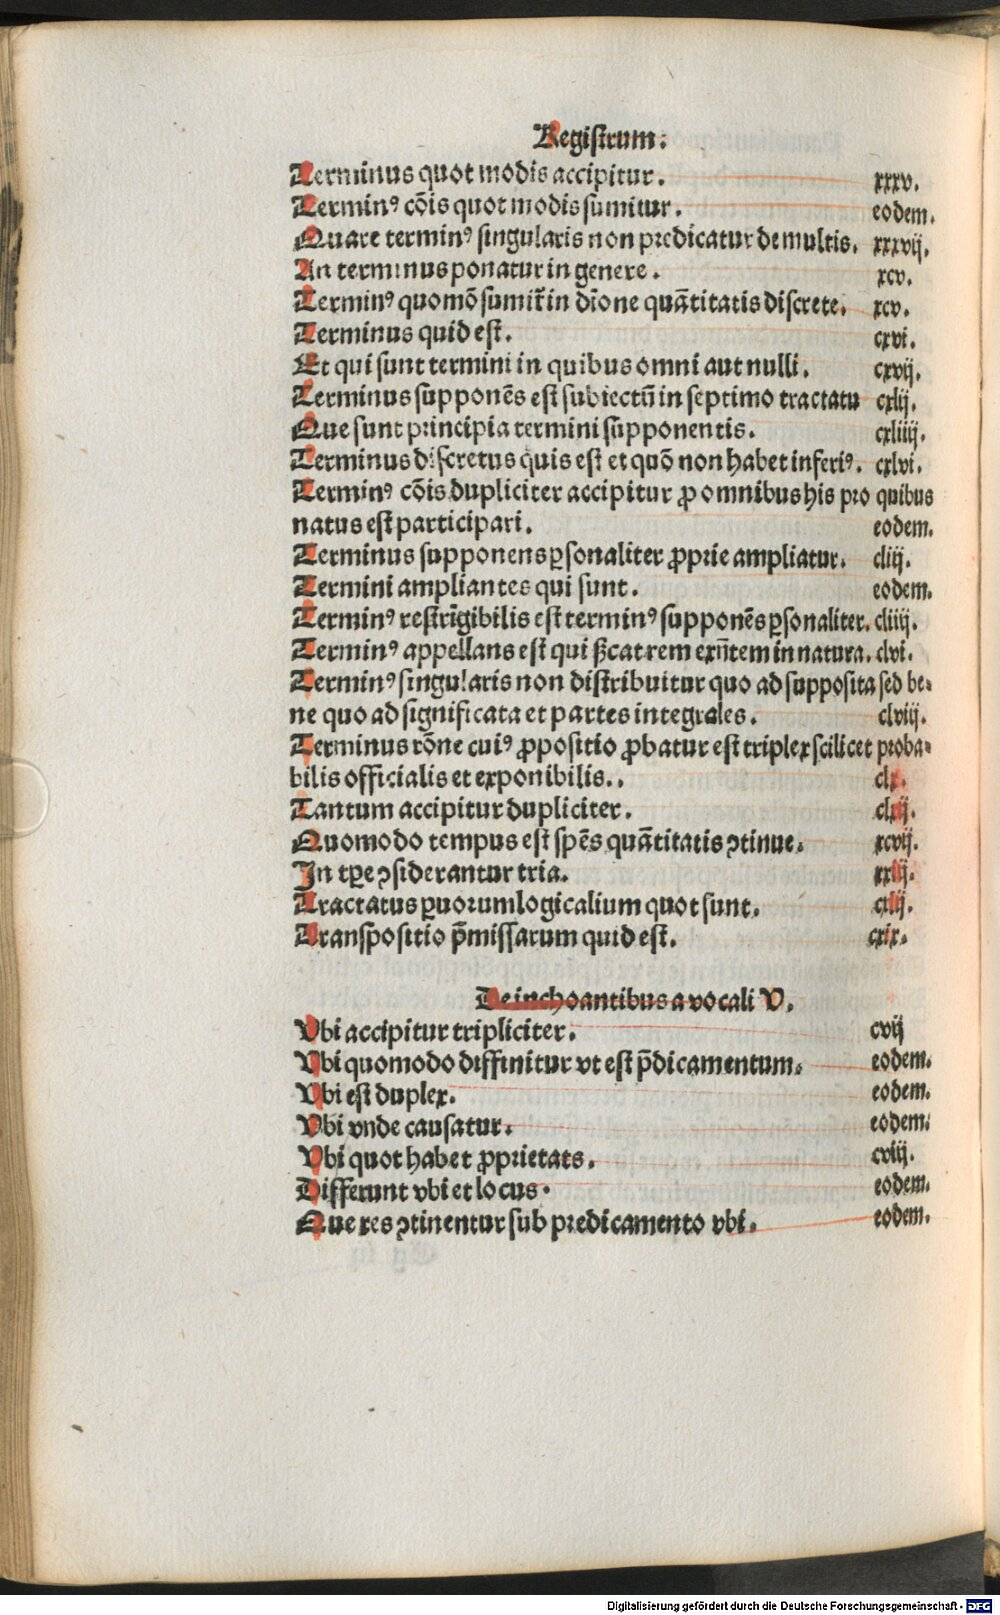 Registrum:
Terminus quot modis accipitur. xxxv.
Terminꝰ cõis quot modis sumitur. eodem.
Quare terminꝰ singularis non predicatur de multis. xxxvij.
An terminus ponatur in genere. xcv.
Terminꝰ quomõ sumit᷑ in diõne quãtitatis discrete. xcv.
Terminus quid est. cxvi.
Et qui sunt termini in quibus omni aut nulli. cxvij.
Terminus supponẽs est subiectũ in septimo tractatu cxlij.
Que sunt principia termini supponentis. cxliiij.
Terminus discretus quis est et quõ non habet inferiꝰ. cxlvi.
Terminꝰ cõis dupliciter accipitur ꝓ omnibus his pro quibus
natus est participari. eodem.
Terminus supponens ꝑsonaliter ꝓprie ampliatur. cliij.
Termini ampliantes qui sunt. eodem.
Terminꝰ restrĩgibilis est terminꝰ supponẽs ꝑsonaliter. cliiij.
Terminꝰ appellans est qui ßcat rem exñtem in natura. clvi.
Terminꝰ singularis non distribuitur quo ad supposita sed be-
ne quo ad significata et partes integrales. clviij.
Terminus rõne cuiꝰ ꝓpositio ꝓbatur est triplex scilicet proba-
bilis officialis et exponibilis.. clx.
Tantum accipitur dupliciter. clxij.
Quomodo tempus est spẽs quãtitatis ↄtinue. xcvij.
In tꝑe ↄsiderantur tria. xxiij.
Tractatus ꝑuorum logicalium quot sunt. cxlij.
Transpositio p̃missarum quid est. cxix.
De inchoantibus a vocali V.
Vbi accipitur tripliciter. cvij
Vbi quomodo diffinitur vt est p̃dicamentum. eodem.
Vbi est duplex. eodem.
Vbi vnde causatur. eodem.
Vbi quot habet ꝓprietats. cviij.
Differunt vbi et locus. eodem.
Que res ↄtinentur sub predicamento vbi. eodem.
Digitalisierung gefördert durch die Deutsche Forschungsgemeinschaft - DFG